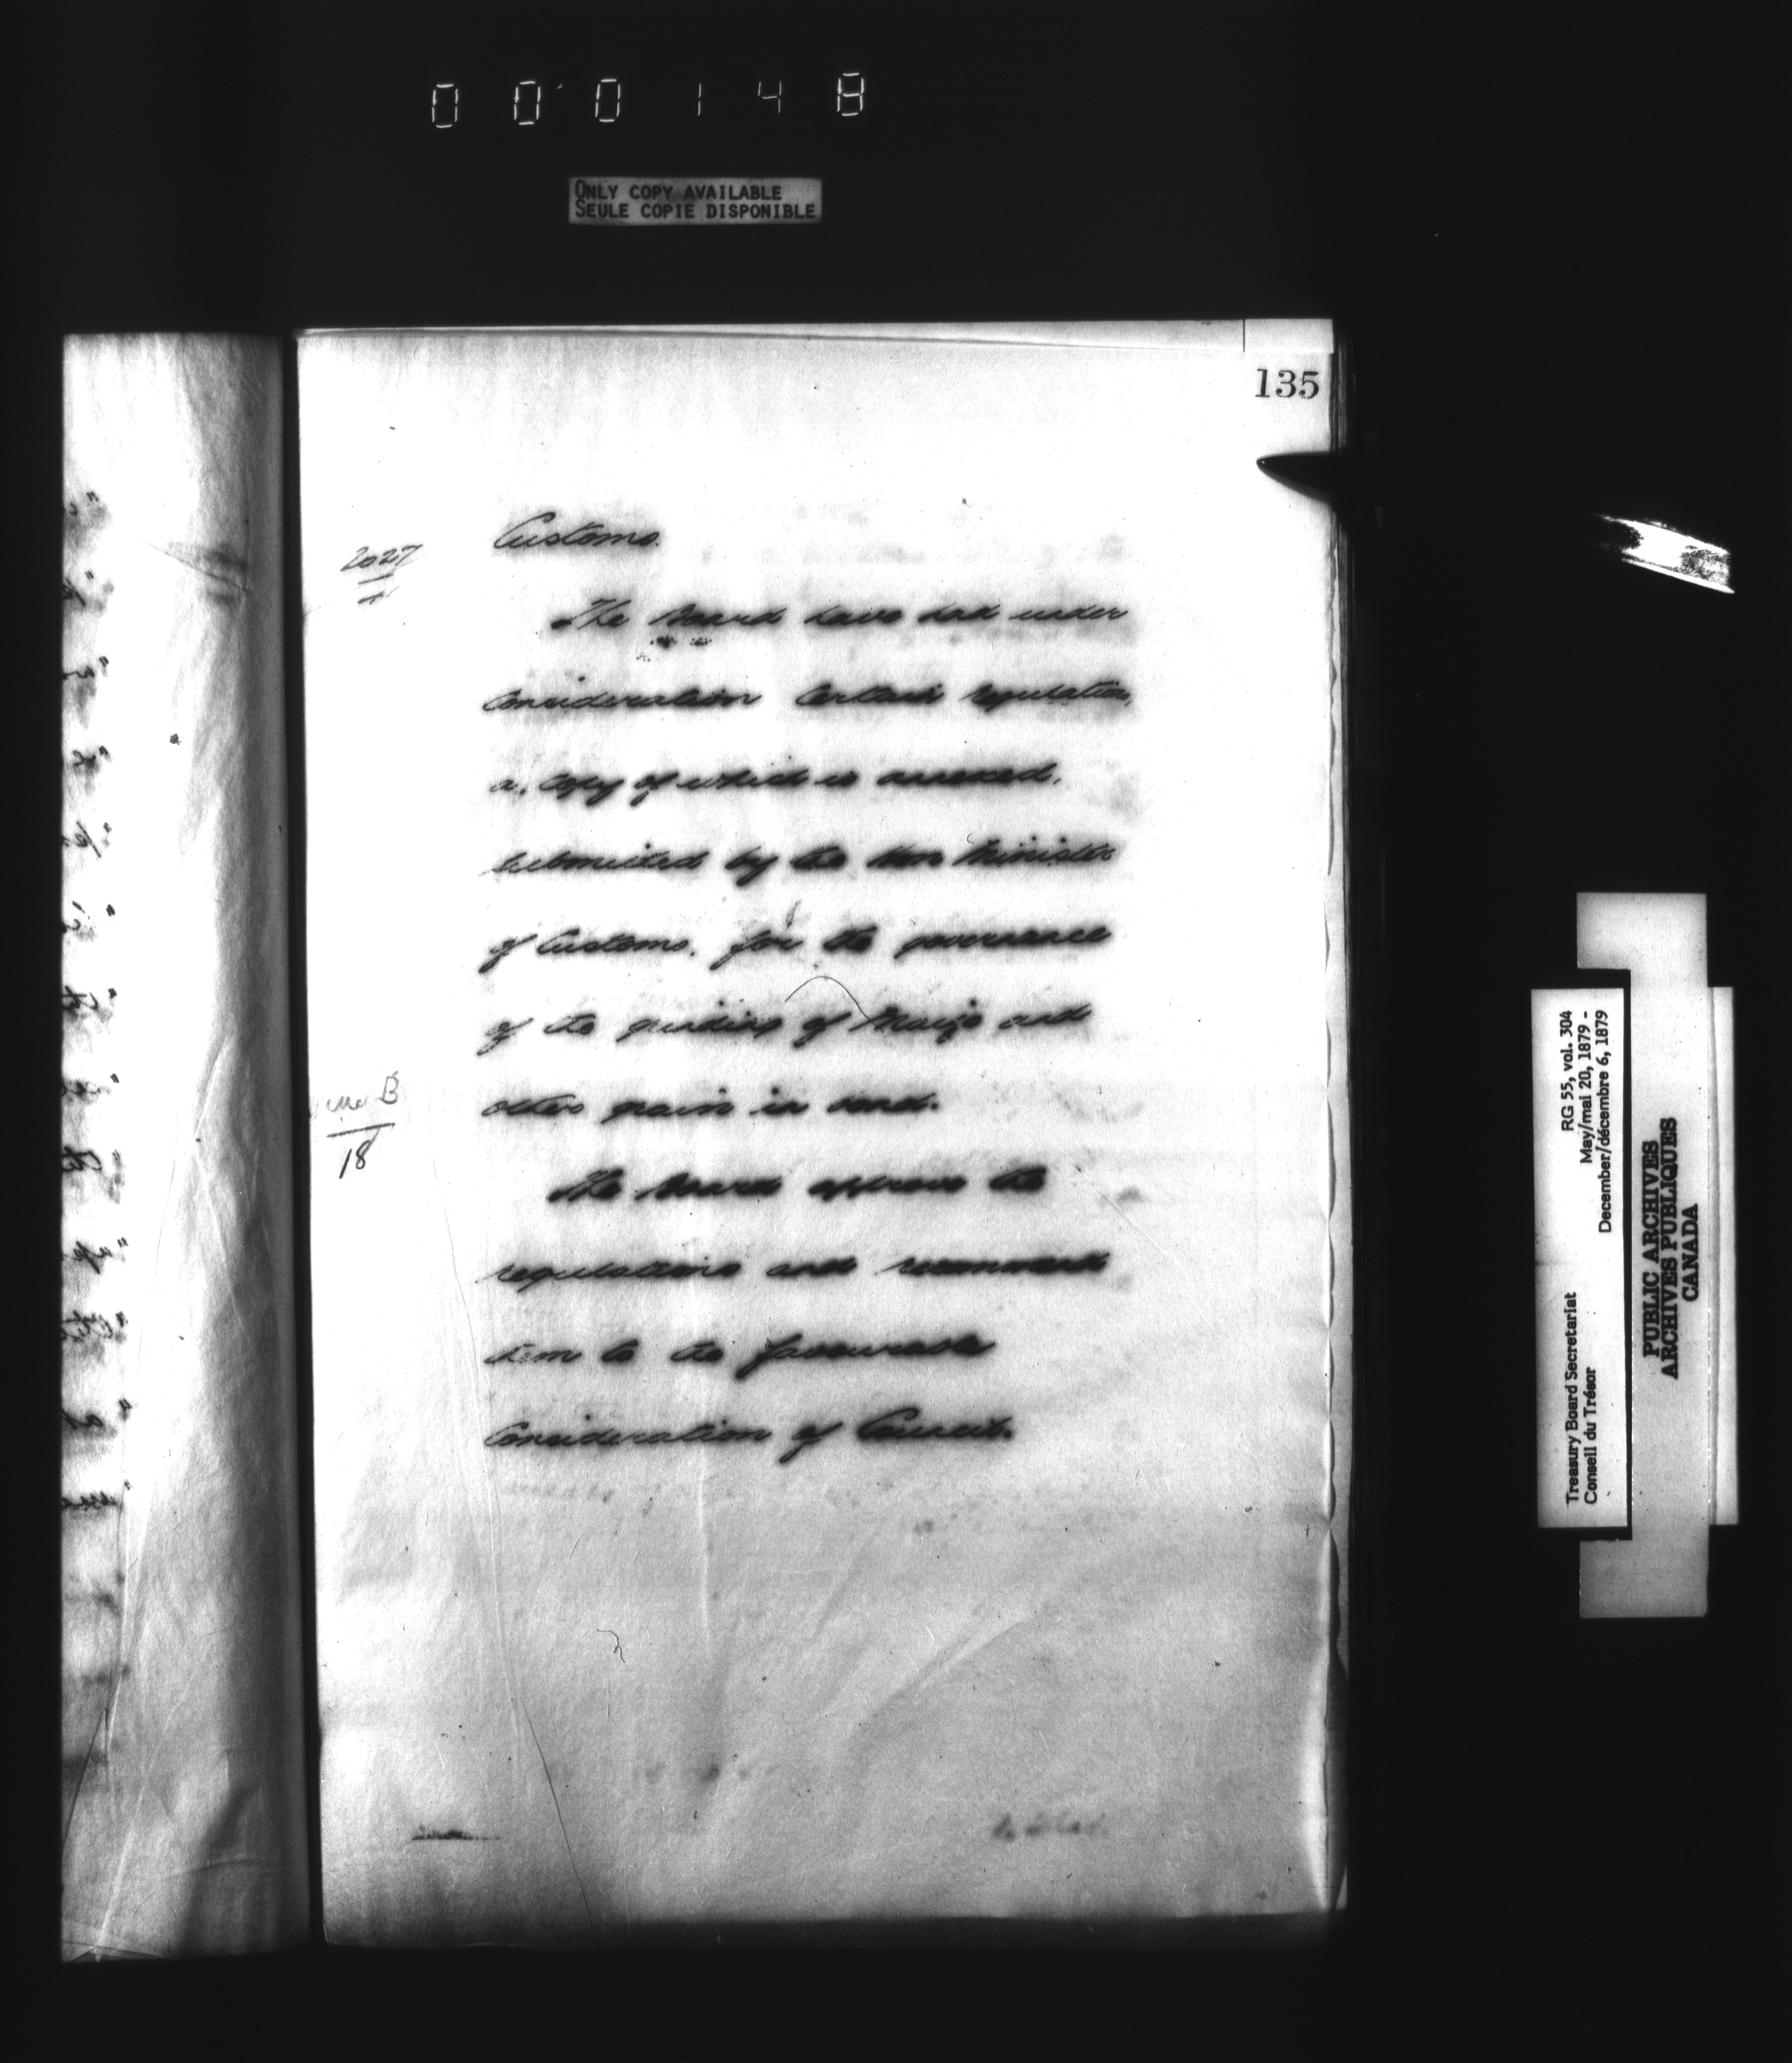 000148
ONLY COPY AVAILABLE
SEULE COPIE DISPONIBLE
135
2027
Customs.
The Board have had under
Consideration Certain regulations,
a copy of which is annexed,
submitted by the Hon Minister
of Customs, for the governance
of the grinding of Maize and
other grain in bond.
B
18
The Board approve the
regulations and recommend
them to the favourable
Consideration of Council.
RG 55, vol. 304
May/mai 20, 1879 -
December/décembre 6, 1879
Treasury Board Secretariat
Conseil du Trésor
PUBLIC ARCHIVES
ARCHIVES PUBLIQUES
CANADA